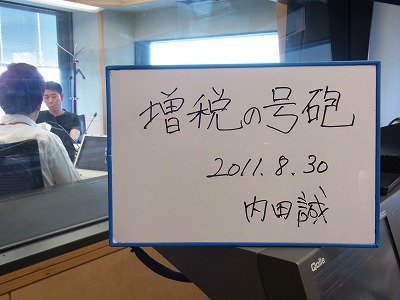 増税の号砲
2011.8.30
内田誠
Qolle